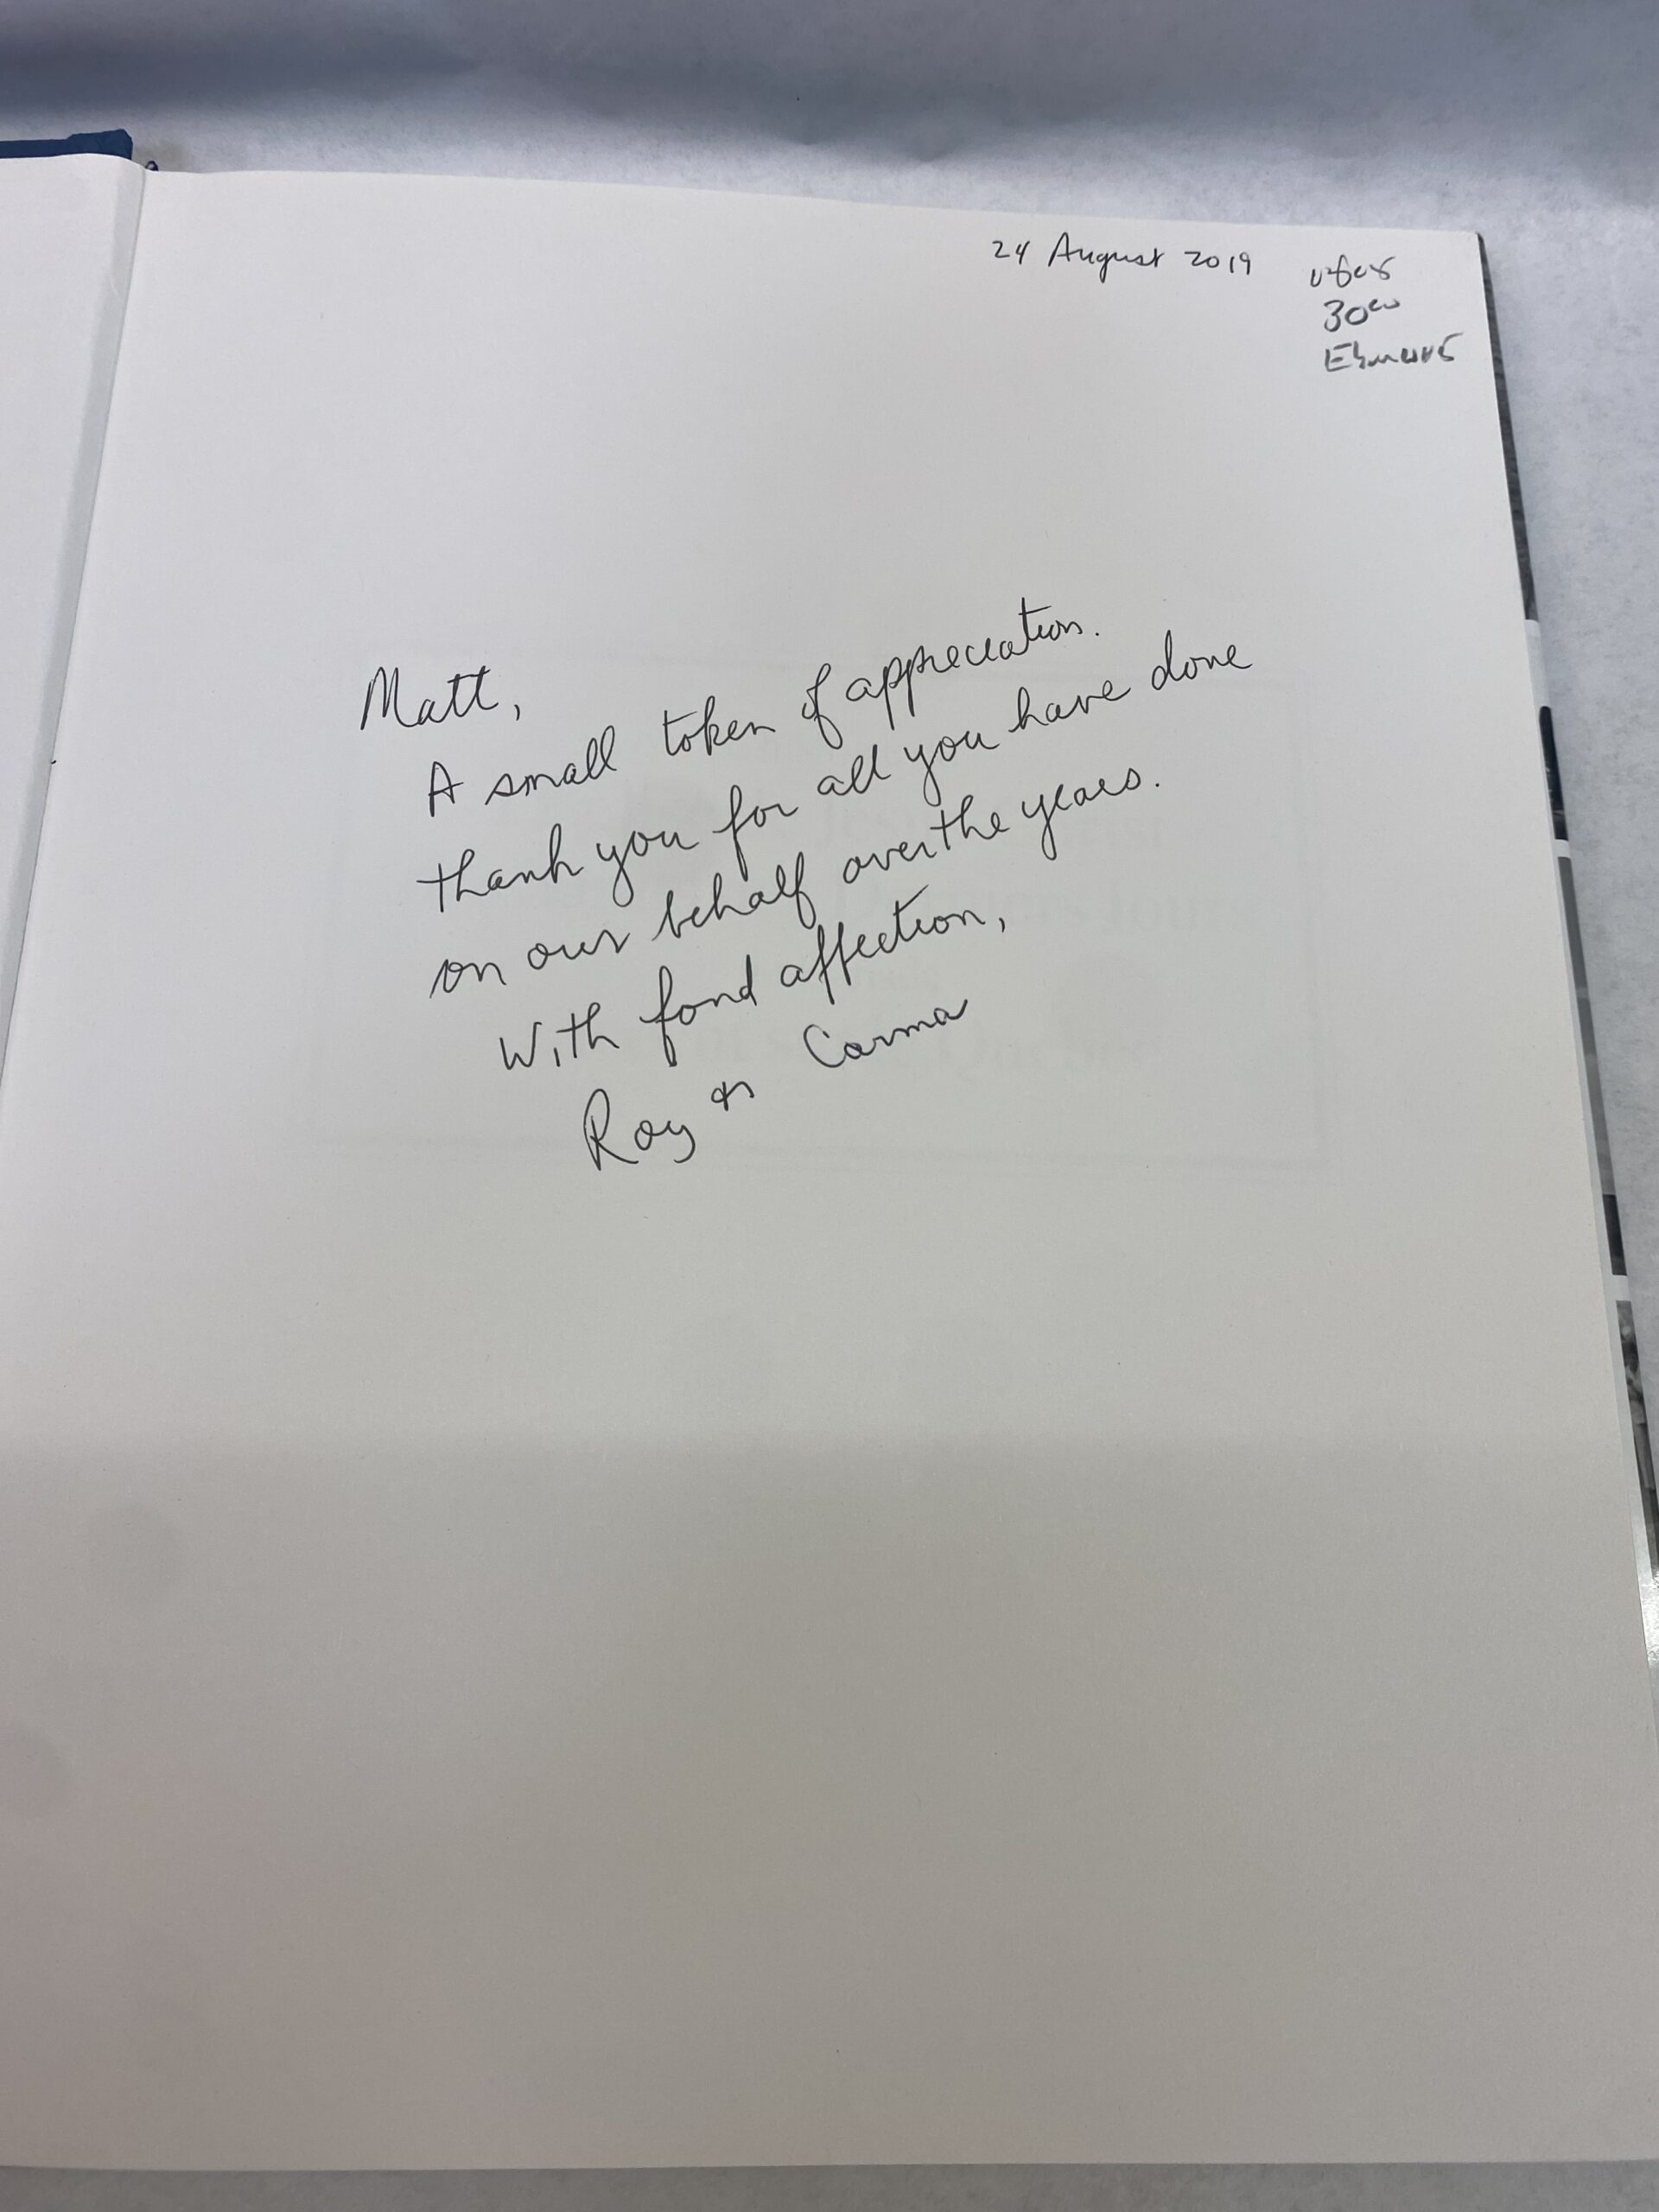 24 August 2019
30⁰⁰
Matt,
A small token of appreciation.
thank you for all you have done
on our behalf over the years.
With fond affection,
Roy & Carma